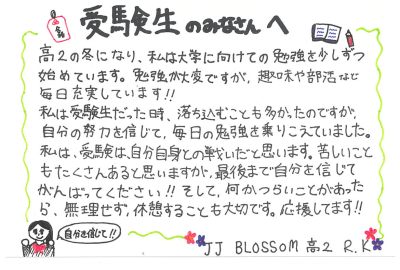 受験生のみなさんへ
高2の冬になり、私は大学に向けての勉強を少しずつ
始めています。勉強が大変ですが、趣味や部活など
毎日充実しています!!
私は受験生だった時、落ち込むことも多かったのですが、
自分の努力を信じて、毎日の勉強を乗りこえていました。
私は、受験は、自分自身との戦いだと思います。苦しいこと
もたくさんあると思いますが、最後まで自分を信じて
がんばってください!!そして、何かつらいことがあった
ら、無理せず、休憩することも大切です。応援してます!!
自分を信じて!!
JJ BLOSSOM 高2 R.K